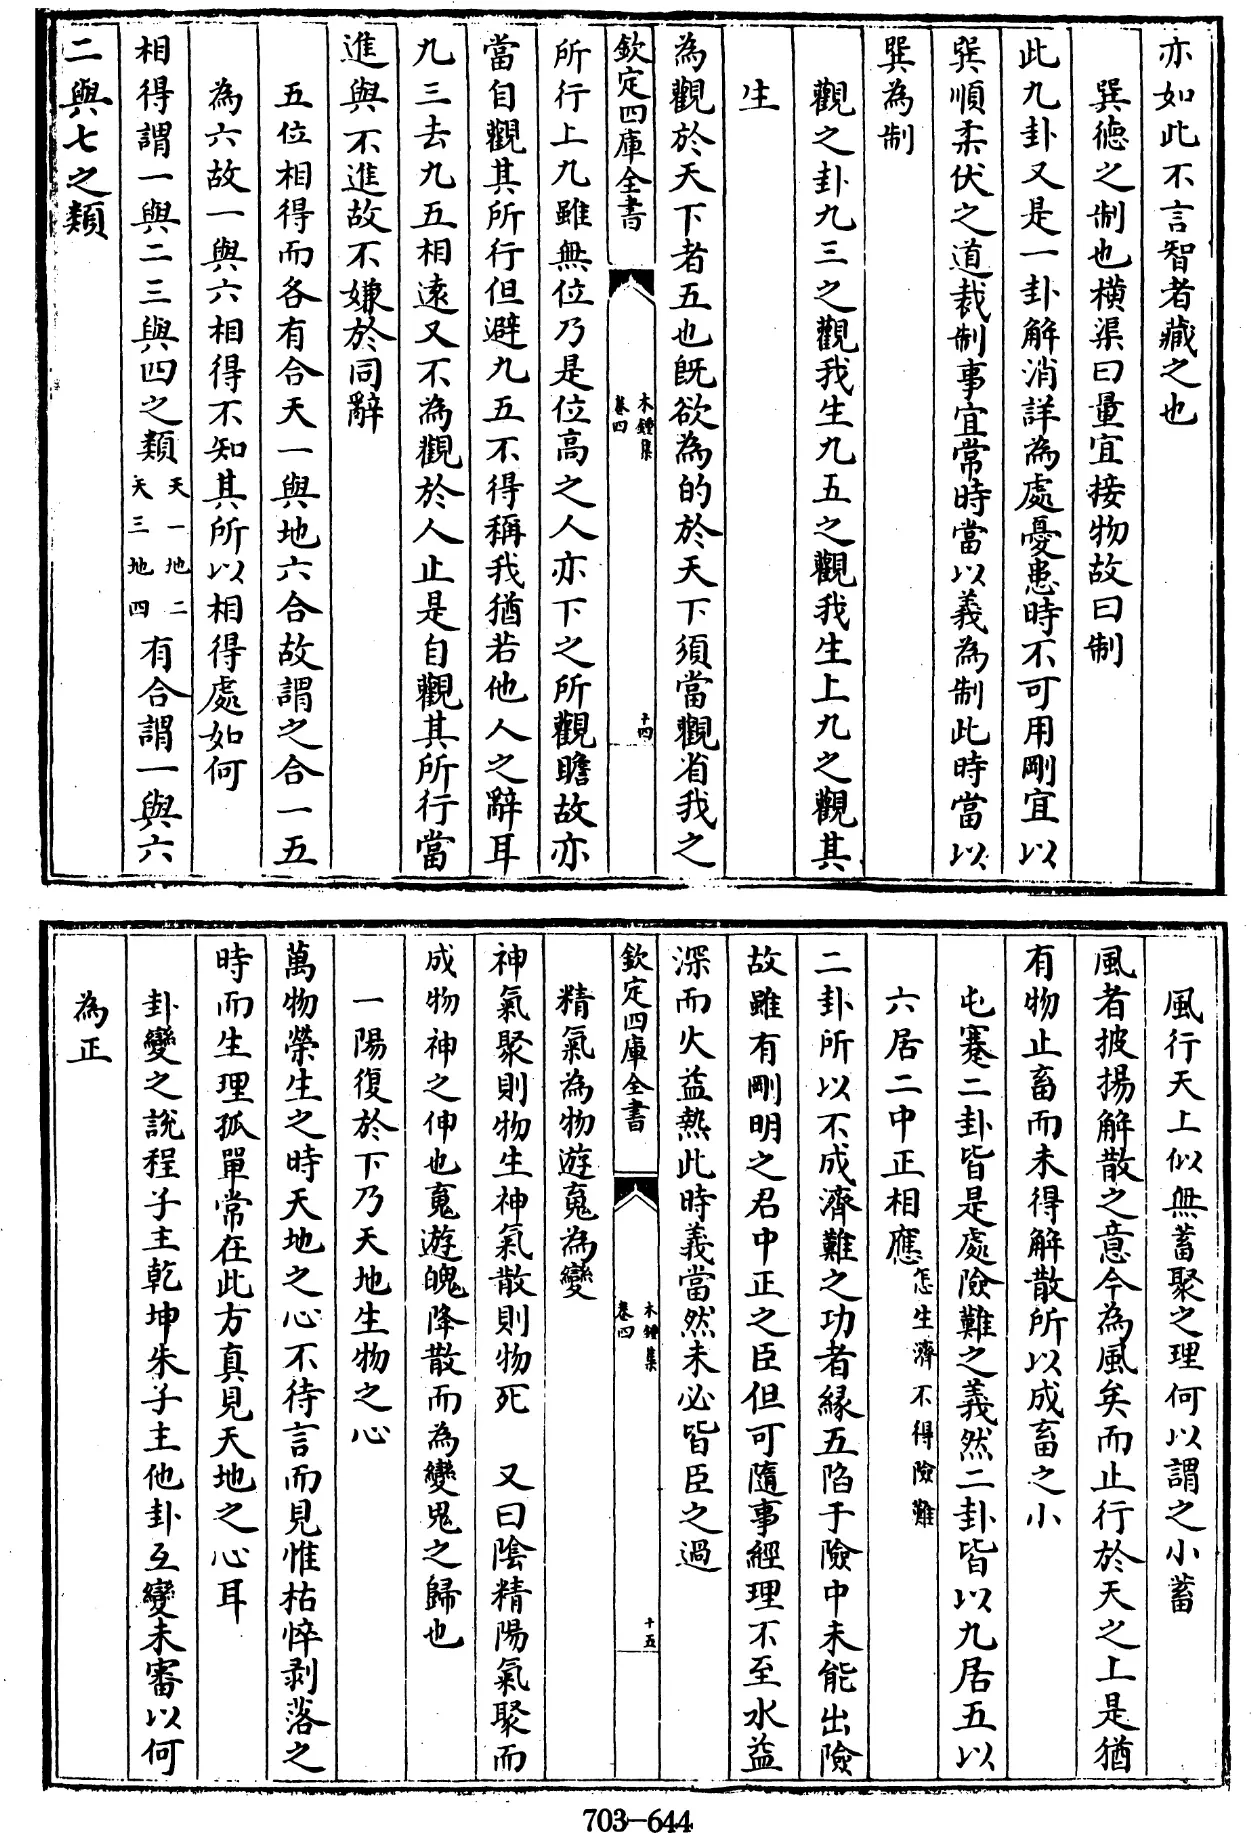 亦如此不言智者藏之也
巽德之制也橫渠曰量宜接物故曰制
此九卦又是一卦解消詳為處憂患時不可用剛宜以
巽順柔伏之道裁制事宜常時當以義為制此時當以
巽為制
觀之卦九三之觀我生九五之觀我生上九之觀其
生
為觀於天下者五也既欲為的於天下須當觀省我之
欽定四庫全書
木鐘集
卷四
十四
所行上九雖無位乃是位高之人亦下之所觀瞻故亦
當自觀其所行但避九五不得稱我猶若他人之辭耳
九三去九五相遠又不為觀於人止是自觀其所行當
進與不進故不嫌於同辭
五位相得而各有合天一與地六合故謂之合一五
為六故一與六相得不知其所以相得處如何
相得謂一與二三與四之類天一地二天三地四有合謂一與六
二與七之類
風行天上似無蓄聚之理何以謂之小蓄
風者披揚解散之意今為風矣而止行於天之上是猶
有物止畜而未得解散所以成畜之小
屯蹇二卦皆是處險難之義然二卦皆以九居五以
六居二中正相應怎生濟不得險難
二卦所以不成濟難之功者緣五陷于險中未能出險
故雖有剛明之君中正之臣但可隨事經理不至水益
深而火益熱此時義當然未必皆臣之過
欽定四庫全書
木鐘集
卷四
十五
精氣為物遊䰟為變
神氣聚則物生神氣散則物死　又曰陰精陽氣聚而
成物神之伸也䰟遊魄降散而為變鬼之歸也
一陽復於下乃天地生物之心
萬物榮生之時天地之心不待言而見惟枯悴剥落之
時而生理孤單常在此方真見天地之心耳
卦變之說程子主乾坤朱子主他卦互變未審以何
為正
703-644